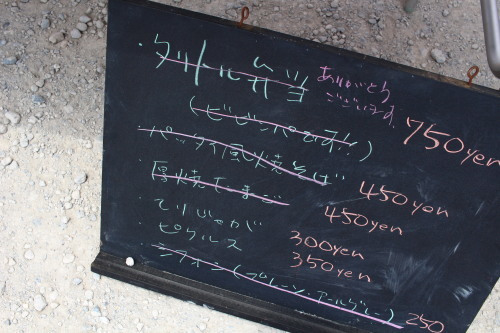 ・タットルカツ
ありがとう
ございます。
(ビビンバです!!) 750yen
・パッタイ風焼そば 450yen
・厚焼たまご 450yen
・てりじゃが 300yen
・ピクルス 350yen
・シフォン(プレーン・アールグレー) 250